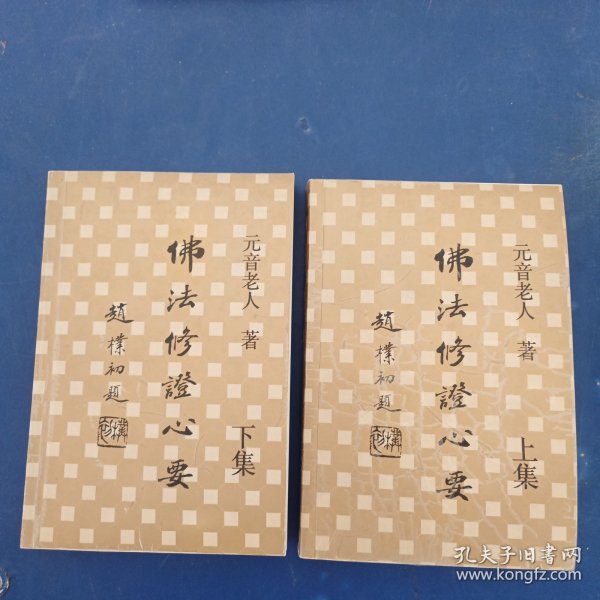 元音老人 著
佛法修證心要
趙樸初題
下集
元音老人 著
佛法修證心要
趙樸初題
上集
孔夫子旧书网
www.kongfz.com